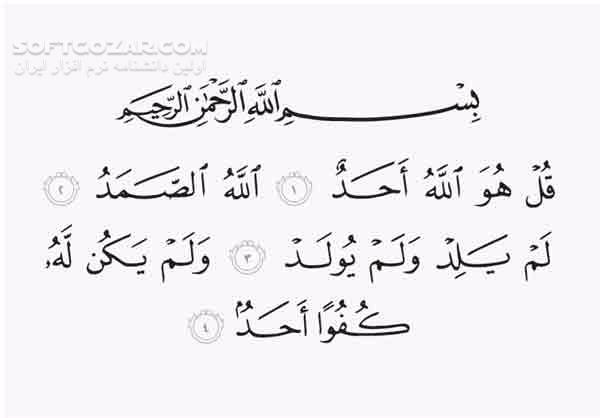 SOFTGOZAR.COM
اولین دانشنامه نرم افزار ایران
بِسْمِ ٱللَّهِ ٱلرَّحْمَٰنِ ٱلرَّحِيمِ
قُلْ هُوَ ٱللَّهُ أَحَدٌ ١ ٱللَّهُ ٱلصَّمَدُ ٢
لَمْ يَلِدْ وَلَمْ يُولَدْ ٣ وَلَمْ يَكُن لَّهُۥ
كُفُوًا أَحَدٌۢ ٤